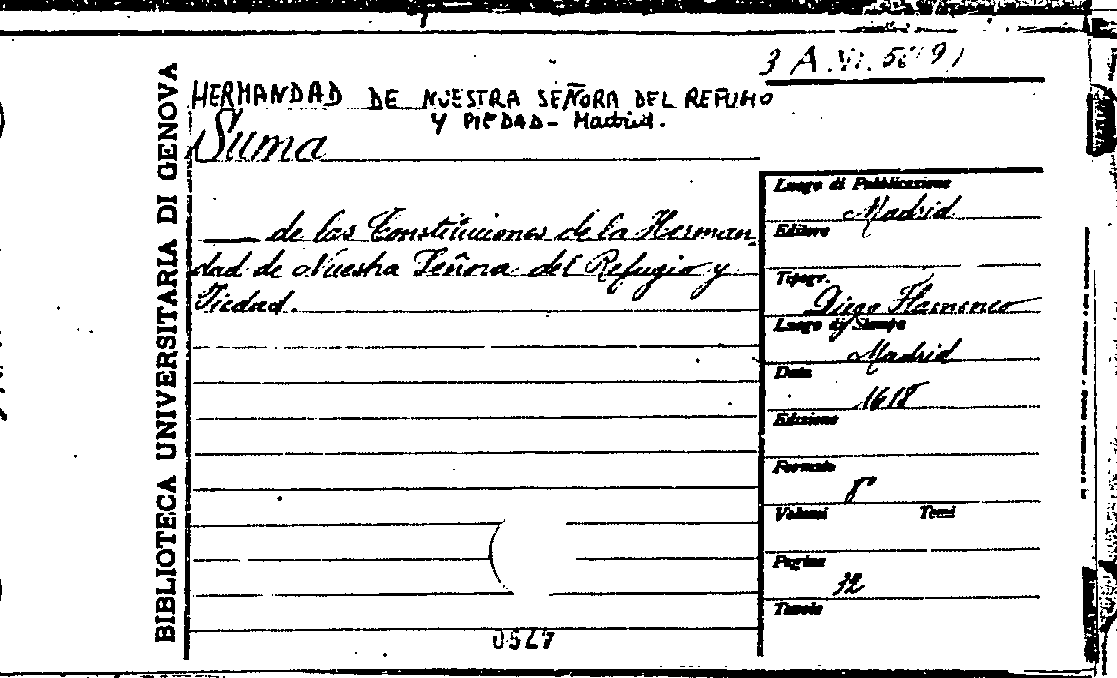 3 A.VI.56(9)
BIBLIOTECA UNIVERSITARIA DI GENOVA
HERMANDAD DE NUESTRA SEÑORA DEL REFUGIO
Y PIEDAD - Madrid.
Suma
de las Constituciones de la Herman-
dad de Nuestra Señora del Refugio y
Piedad.
Luogo di Pubblicazione
Madrid
Editore
Tipogr.
Diego Flamenco
Luogo di Stampa
Madrid
Data
1618
Edizione
Formato
8°
Volumi Tomi
Pagine
32
Tavole
0547